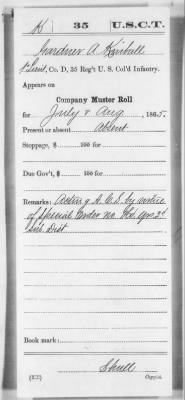 K | 35 | U.S.C.T.
Gardner A Kimball
1 Lieut, Co. D, 35 Reg't U. S. Col'd Infantry.
Appears on
Company Muster Roll
for July & Aug, 1865.
Present or absent Absent
Stoppage, $ 100 for
Due Gov't, $ 100 for
Remarks: Acting A.C.S. by
of Special Order No.
Sub Dist
Book mark:
Shull
Copyist.